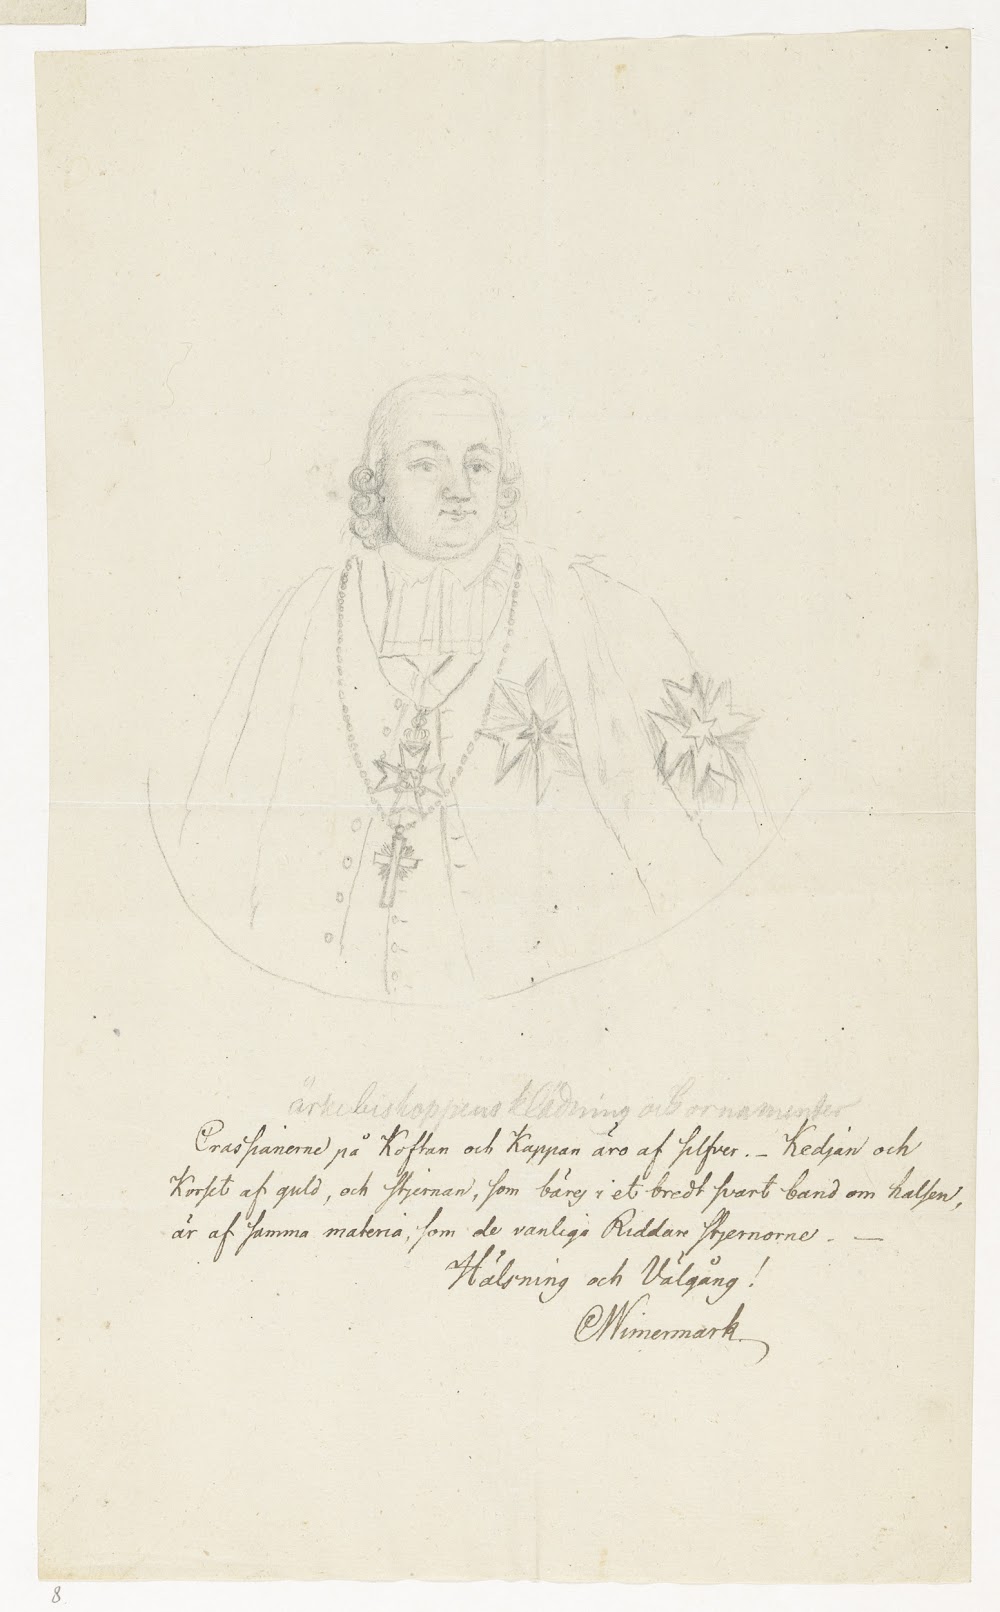 ärkebiskoppens klädning och ornamenter
Craspianerne på Koftan och Kappan äro af silfver. – Kedjan och
Korset af guld, och stjernan, som bäres i et bredt svart band om halsen,
är af samma materia, som de vanliga Riddare stjernorne. —
Hälsning och Välgång!
CWimermark
8